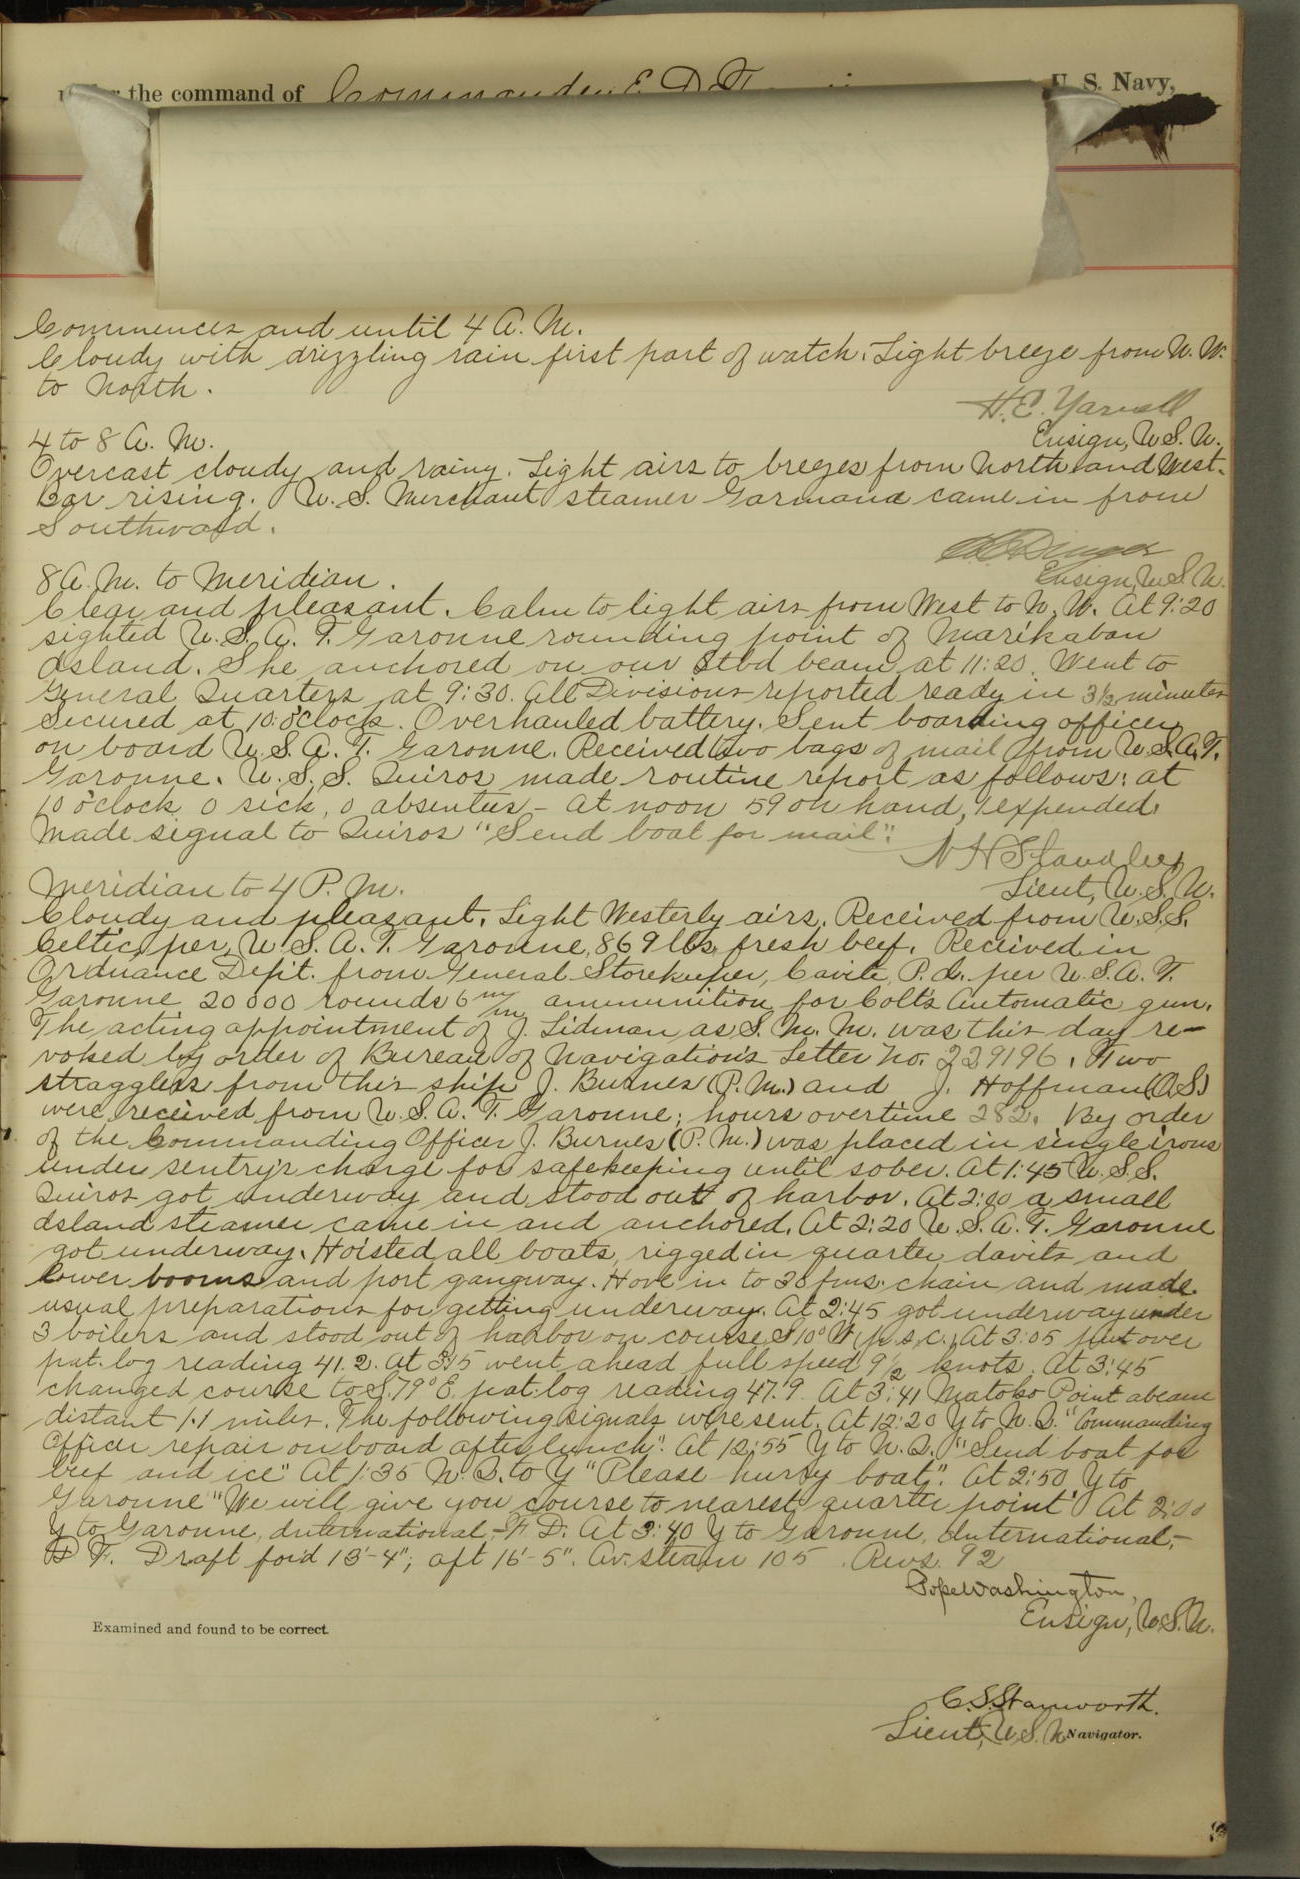 the command of Commander E. D. T U. S. Navy,
Commences and until 4 A. M.
Cloudy with drizzling rain first part of watch. Light breeze from N. W.
to North.
H. E. Yarnell
Ensign, U. S. N.
4 to 8 A. M.
Overcast cloudy and rainy. Light airs to breezes from North and West.
Bar rising. U. S. Merchant steamer Garmana came in from
Southward.
Ensign, U. S. N.
8 A. M. to Meridian.
Clear and pleasant. Calm to light airs from West to N. W. At 9:20
sighted U. S. A. T. Garonne rounding point of Marikaban
Island. She anchored on our Stbd beam at 11:20. Went to
General Quarters at 9:30. All Divisions reported ready in 3½ minutes
Secured at 10 o'clock. Overhauled battery. Sent boarding officer
on board U. S. A. T. Garonne. Received two bags of mail from U. S. A. T.
Garonne. U. S. S. Quiros made routine report as follows: at
10 o'clock 0 sick, 0 absentees - At noon 59 on hand, 1 expended.
Made signal to Quiros "Send boat for mail".
W H Standley
Lieut, U. S. N.
Meridian to 4 P. M.
Cloudy and pleasant. Light Westerly airs. Received from U. S. S.
Celtic, per U. S. A. T. Garonne, 869 lbs. fresh beef. Received in
Ordnance Dept. from General Storekeeper, Cavite, P. I. per U. S. A. T.
Garonne 20000 rounds 6 m/m ammunition for Colt's Automatic gun.
The acting appointment of J. Lidman as S. M. M. was this day re-
voked by order of Bureau of Navigation's Letter No. 229196. Two
stragglers from this ship J. Burnes (P. M.) and J. Hoffman (O. S.)
were received from U. S. A. T. Garonne; hours overtime 282. By order
of the Commanding Officer J. Burnes (P. M.) was placed in single irons
under sentry's charge for safekeeping until sober. At 1:45 U. S. S.
Quiros got underway and stood out of harbor. At 2:00 a small
Island steamer came in and anchored. At 2:20 U. S. A. T. Garonne
got underway. Hoisted all boats, rigged in quarter davits and
lower booms and port gangway. Hove in to 30 fms. chain and made
usual preparations for getting underway. At 2:45 got underway under
3 boilers and stood out of harbor on course S 10° W (p. s. c.) At 3:05 put over
pat. log reading 41.2. At 3:15 went ahead full speed 9½ knots. At 3:45
changed course to S. 79° E. pat. log reading 47.9. At 3:41 Matoko Point abeam
distant 1.1 miles. The following signals were sent. At 12:20 Y to N. Q. "Commanding
Officer repair on board after lunch". At 12:55 Y to N. Q. "Send boat for
beef and ice" At 1:35 N. Q. to Y "Please hurry boat". At 2:50 Y to
Garonne "We will give you course to nearest quarter point" At 2:00
Y to Garonne, International, - F. D. At 3:40 Y to Garonne, International, -
D F. Draft for'd 13'-4", aft 16'-5". Av. steam 105. Revs. 92
Pope Washington,
Ensign, U. S. N.
Examined and found to be correct.
C. S. Stanworth.
Lieut, U. S. N Navigator.